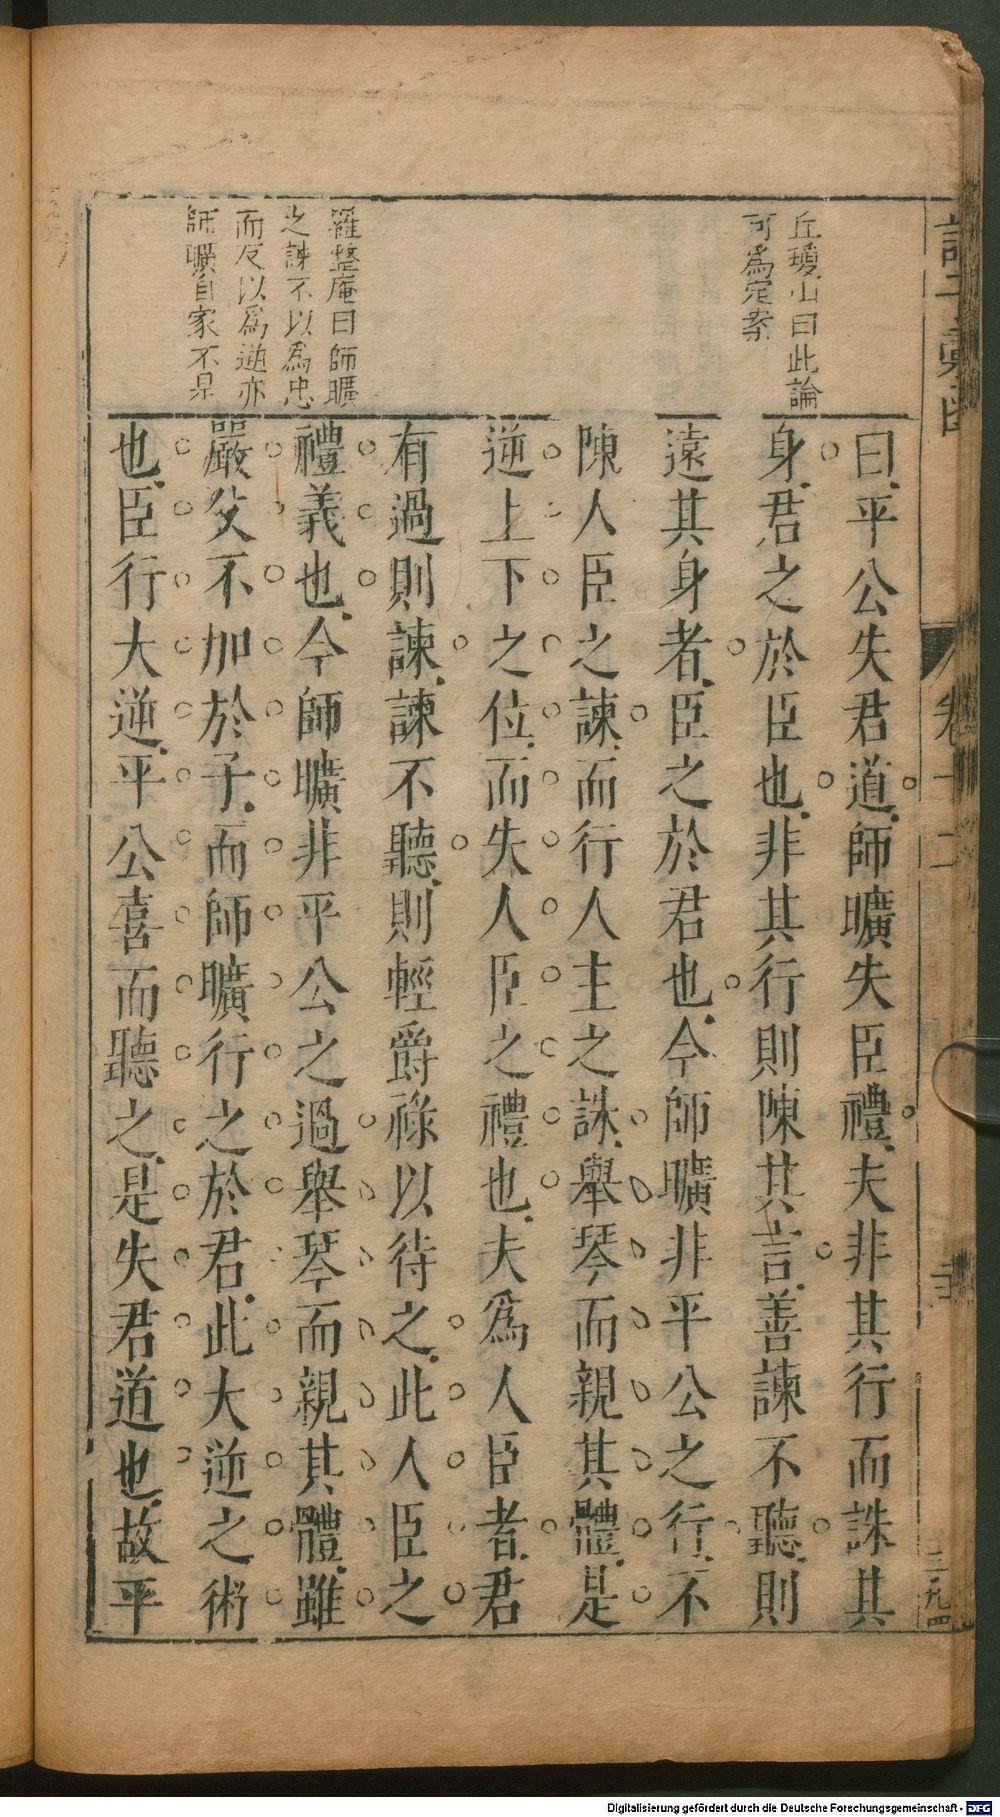 曰平公失君道師曠失臣禮夫非其行而誅其
身君之於臣也非其行則陳其言善諫不聽則
遠其身者臣之於君也今師曠非平公之行不
陳人臣之諫而行人主之誅舉琴而親其體是
逆上下之位而失人臣之禮也夫為人臣者君
有過則諫諫不聽則輕爵祿以待之此人臣之
禮義也今師曠非平公之過舉琴而親其體雖
嚴父不加於子而師曠行之於君此大逆之術
也臣行大逆平公喜而聽之是失君道也故平
丘瓊山曰此論
可為定案
羅整庵曰師曠
之諫不以為忠
而反以為逆亦
師曠自家不是
卷十二
三九四
Digitalisierung gefördert durch die Deutsche Forschungsgemeinschaft - DFG